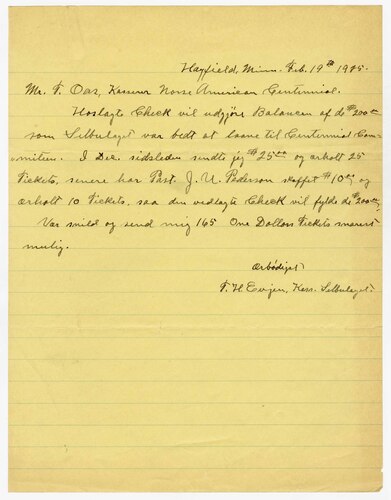 Hayfield, Minn. Feb. 19th 1925.
Mr. T. Oas, Kasserer Norse American Centennial.
Hoslagte Check vil udgjöre Balancen af de $200.00
som Selbulaget var bedt at laane til Centennial Com-
miteen. I Dec. sidstleden sendte jeg $25.00 og erholt 25
Tickets, senere har Past. J. U. Pederson skaffet $10.00 og
erholt 10 Tickets, saa den vedlagte Check vil fylde de $200.00
Vær snild og send mig 165 One Dollars Tickets snarest
mulig.
Ærbödigst
T. H. Evjen, Kass. Selbulaget.